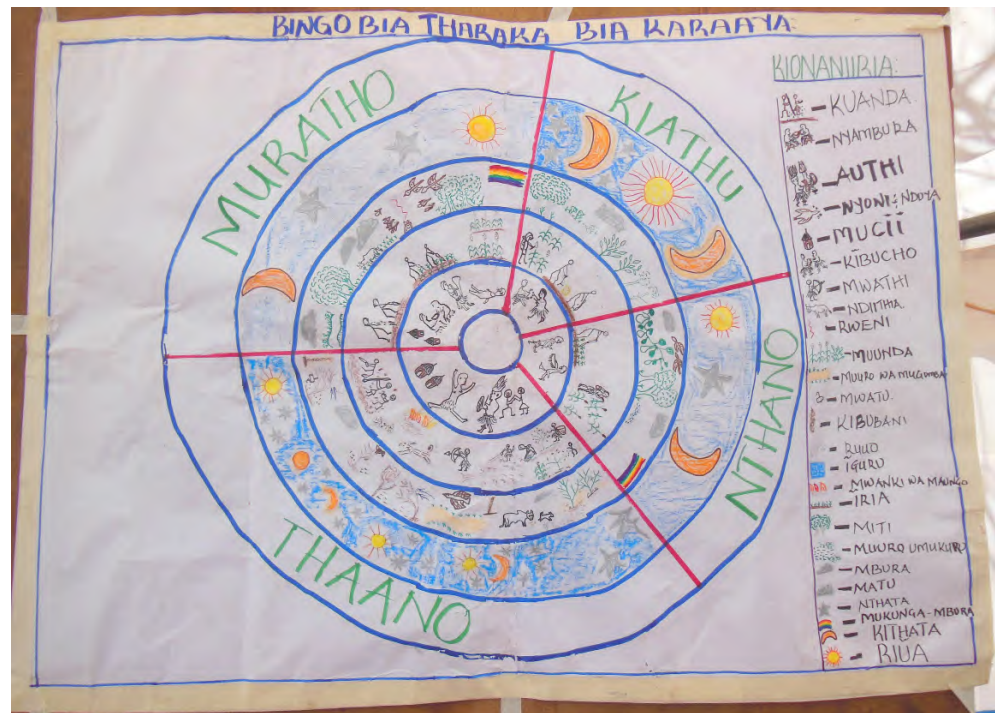 BINGO BIA THARAKA BIA KARAAYA:
MURATHO
KIATHU
NTHANO
THAANO
KIONANIIRIA:
– KUANDA
– NYAMBURA
– AUTHI
– NYONI: NDOYA
– MUCII
– KIBUCHO
– MWATHI
– NDITHIA
– RWENI
– MUUNDA
– MUURO WA MUGUMBA
– MWATU
– KIBUBANI
– RUUO
– IGURU
– MWANKI WA MAUNGO
– IRIA
– MITI
– MUURO UMUKURU
– MBURA
– MATU
– NTHATA
MUKUNGA-MBURA
– KITHATA
– RIUA